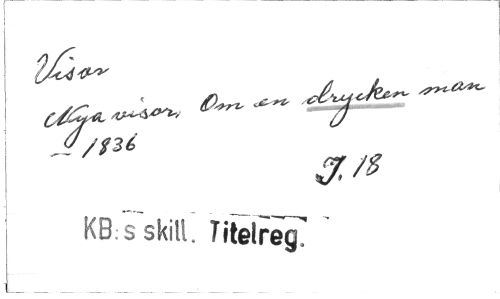 Visor
Nya visor, Om en drycken man
— 1836
J. 18
KB:s skill. Titelreg.